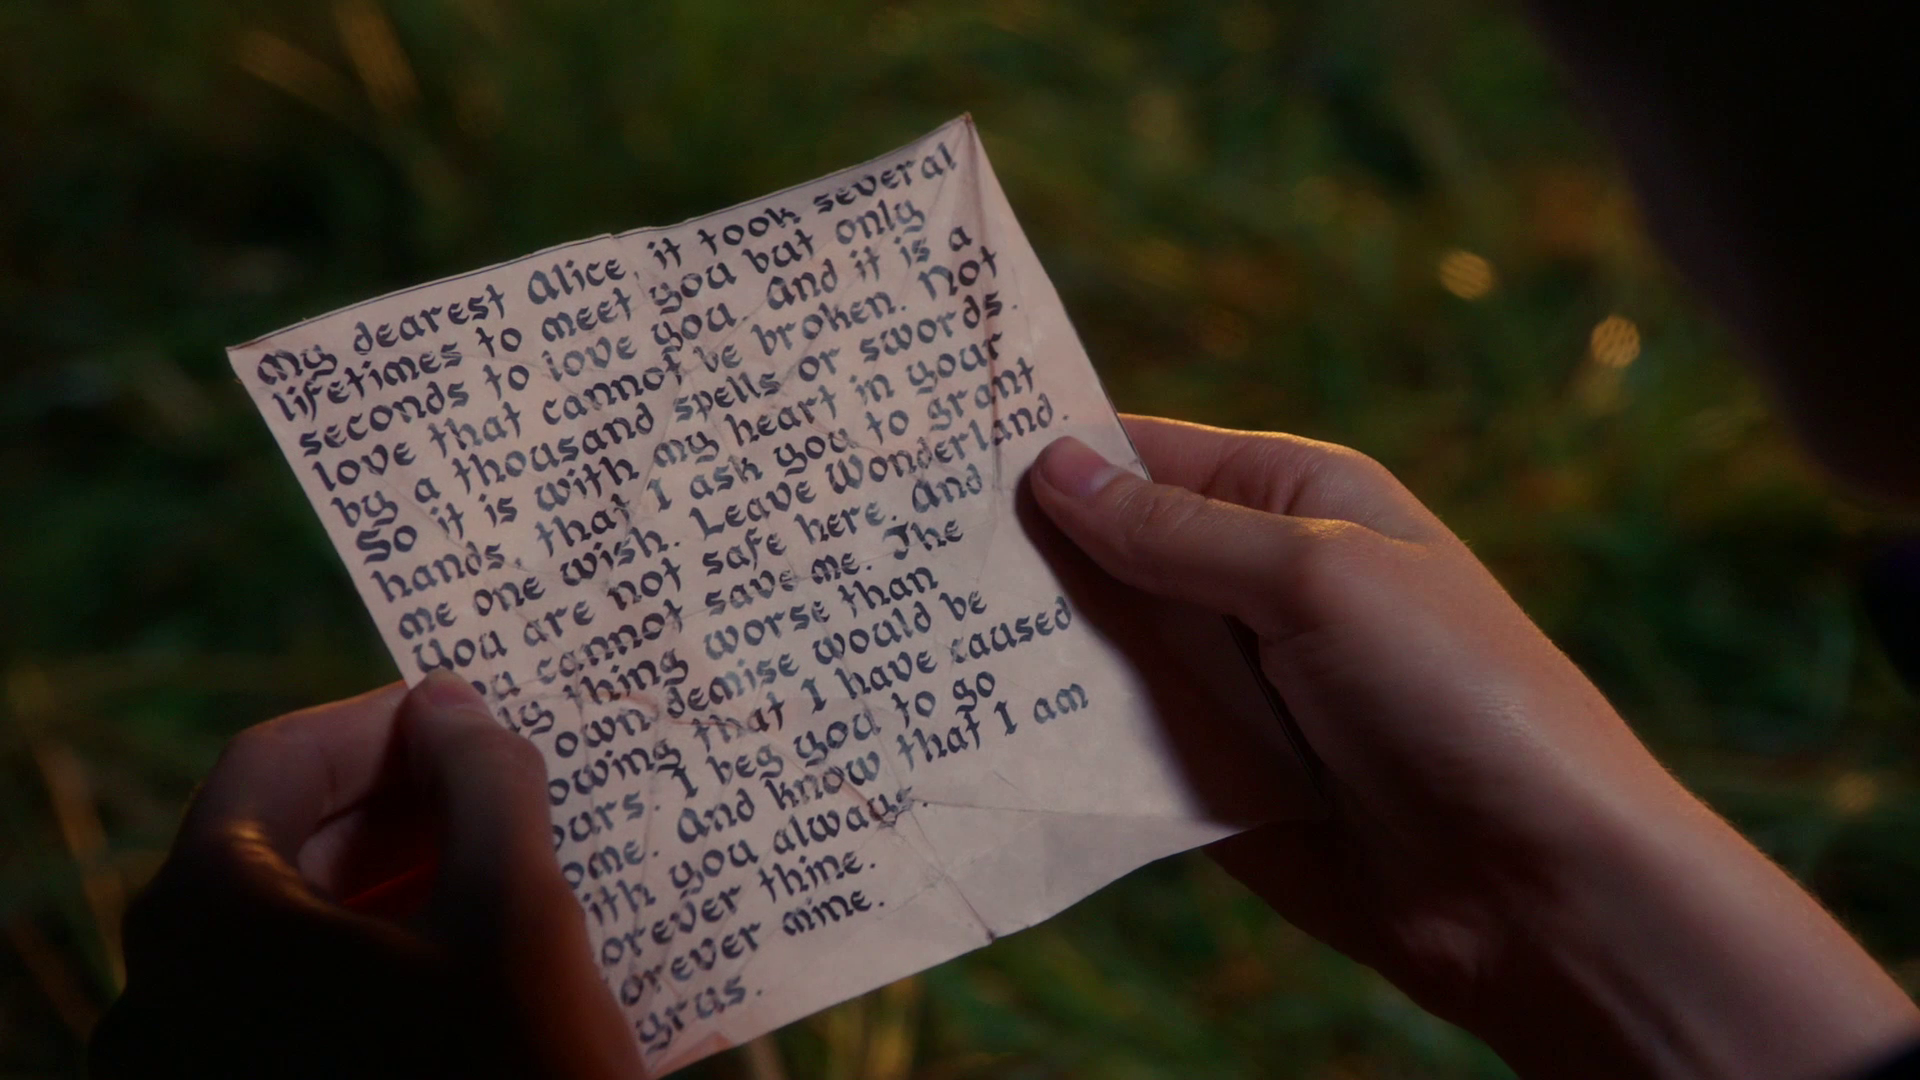 My dearest Alice, it took several
lifetimes to meet you but only
seconds to love you. And it is a
love that cannot be broken. Not
by a thousand spells or swords.
So it is with my heart in your
hands, that I ask you to grant
me one wish. Leave Wonderland.
You are not safe here. And
cannot save me. The
thing worse than
own demise would be
owing that I have caused
ours. I beg you to go
ome. And know that I am
ith you always.
orever thine.
orever mine.
yrus.